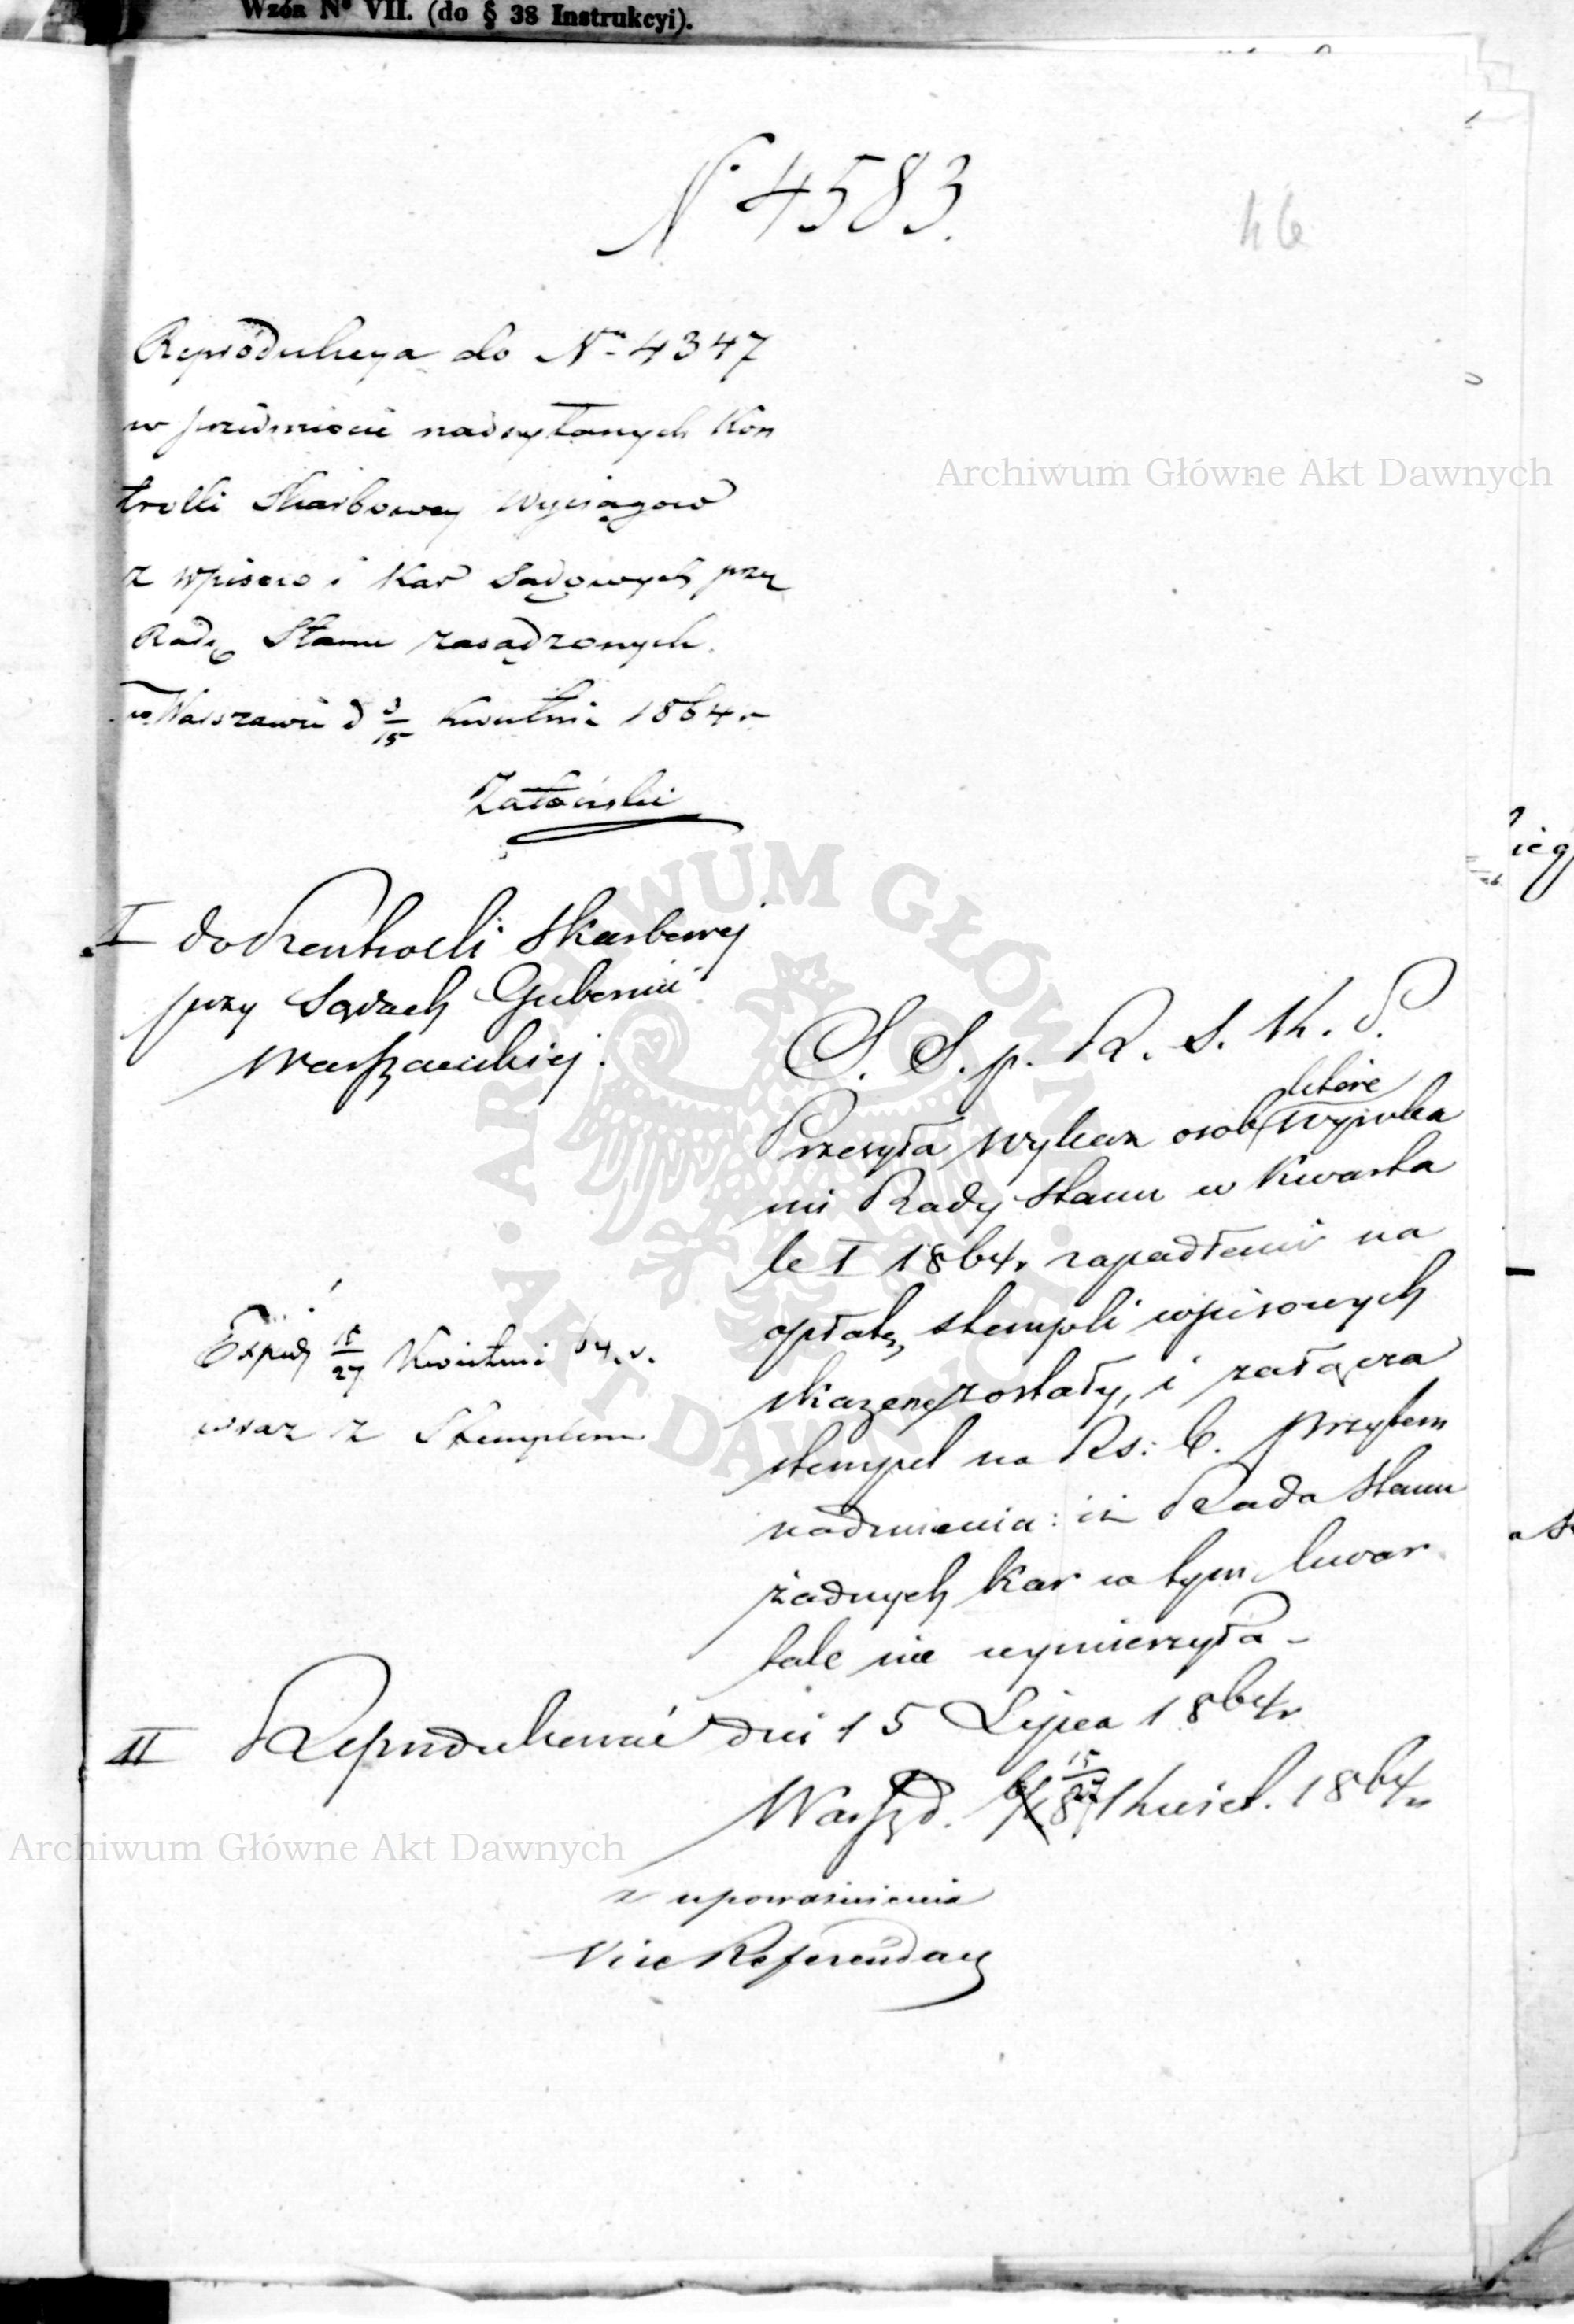 Wzór Nº VII. (do § 38 Instrukcyi).
Nº 4583.
46
Reprodukcya do Nru 4347
w przedmiocie nadsyłanych Kon
trolli Skarbowey Wyciągow
z wpisow i Kar Sądowych przy
Radę Stanu zasądzonych.
w Warszawie d 3/15 Kwietnia 1864 r
Archiwum Główne Akt Dawnych
I do Kontrolli Skarbowej
przy Sądach Gubernii
Warszawskiej.
S. S. p. R. S. K. P.
które
Przesyła wykaz osob wyroka
mi Rady Stanu w Kwarta
le I 1864 r zapadłemi na
opłatę stempli wpisowych
skazane zostały, i załącza
stempel na Rs: 6. przytem
nadmienia: iż Rada Stanu
żadnych kar w tym kwar
tale nie wymierzyła –
Exped 15/27 Kwietnia 64. r.
wraz z Stemplem
II Reprodukować dni 15 Lipca 1864 r
Warsz d. 15/27 Kwiet. 1864 r
Archiwum Główne Akt Dawnych
z upoważnienia
Vice Referendarz
ARCHIWUM GŁÓWNE · AKT DAWNYCH ·